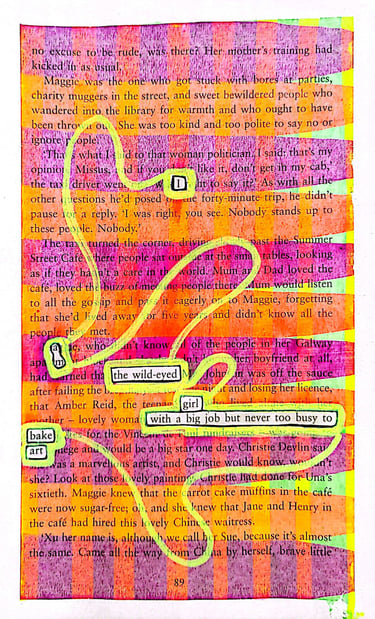 no excuse to be rude, was there? Her mother's training had
kicked in as usual.
Maggie was the one who got stuck with bores at parties,
charity muggers in the street, and sweet bewildered people who
wandered into the library for warmth and who ought to have
been thrown out. She was too kind and too polite to say no or
ignore people.
'That's what I said to that woman politician, I said: that's my
opinion, Missus, and if you like it, don't get in my cab,'
the taxi driver went I to say it?' As with all the
other questions he'd posed the forty-minute trip, he didn't
pause for a reply. 'I was right, you see. Nobody stands up to
these people. Nobody.'
The taxi turned the corner, driving past the Summer
Street Café where people sat at the small tables, looking
as if they hadn't a care in the world. Mum and Dad loved the
café, loved the buzz of meeting people there. Mum would listen
to all the gossip and pass it eagerly on to Maggie, forgetting
that she'd lived away for five years and didn't know all the
people they met.
who didn't know of the people in her Galway
boyfriend at all,
had learned that the wild-eyed was off the sauce
after failing the and losing her licence,
that Amber Reid, the girl
mother – lovely woman with a big job but never too busy to
bake for the
art and would be a big star one day. Christie Devlin
was a marvellous artist, and Christie would know,
she? Look at those lovely painting Christie had done for Una's
sixtieth. Maggie knew that the carrot cake muffins in the café
were now sugar-free; and she knew that Jane and Henry in
the café had hired this lovely Chinese waitress.
'Xu her name is, although we call her Sue, because it's almost
the same. Came all the way from China by herself, brave little
89